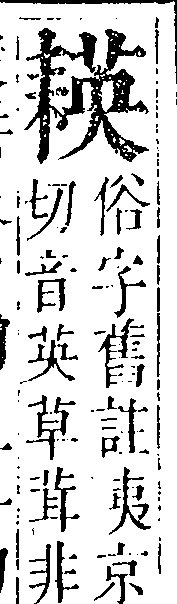 䅰
俗字舊註夷京
切音英草茸非